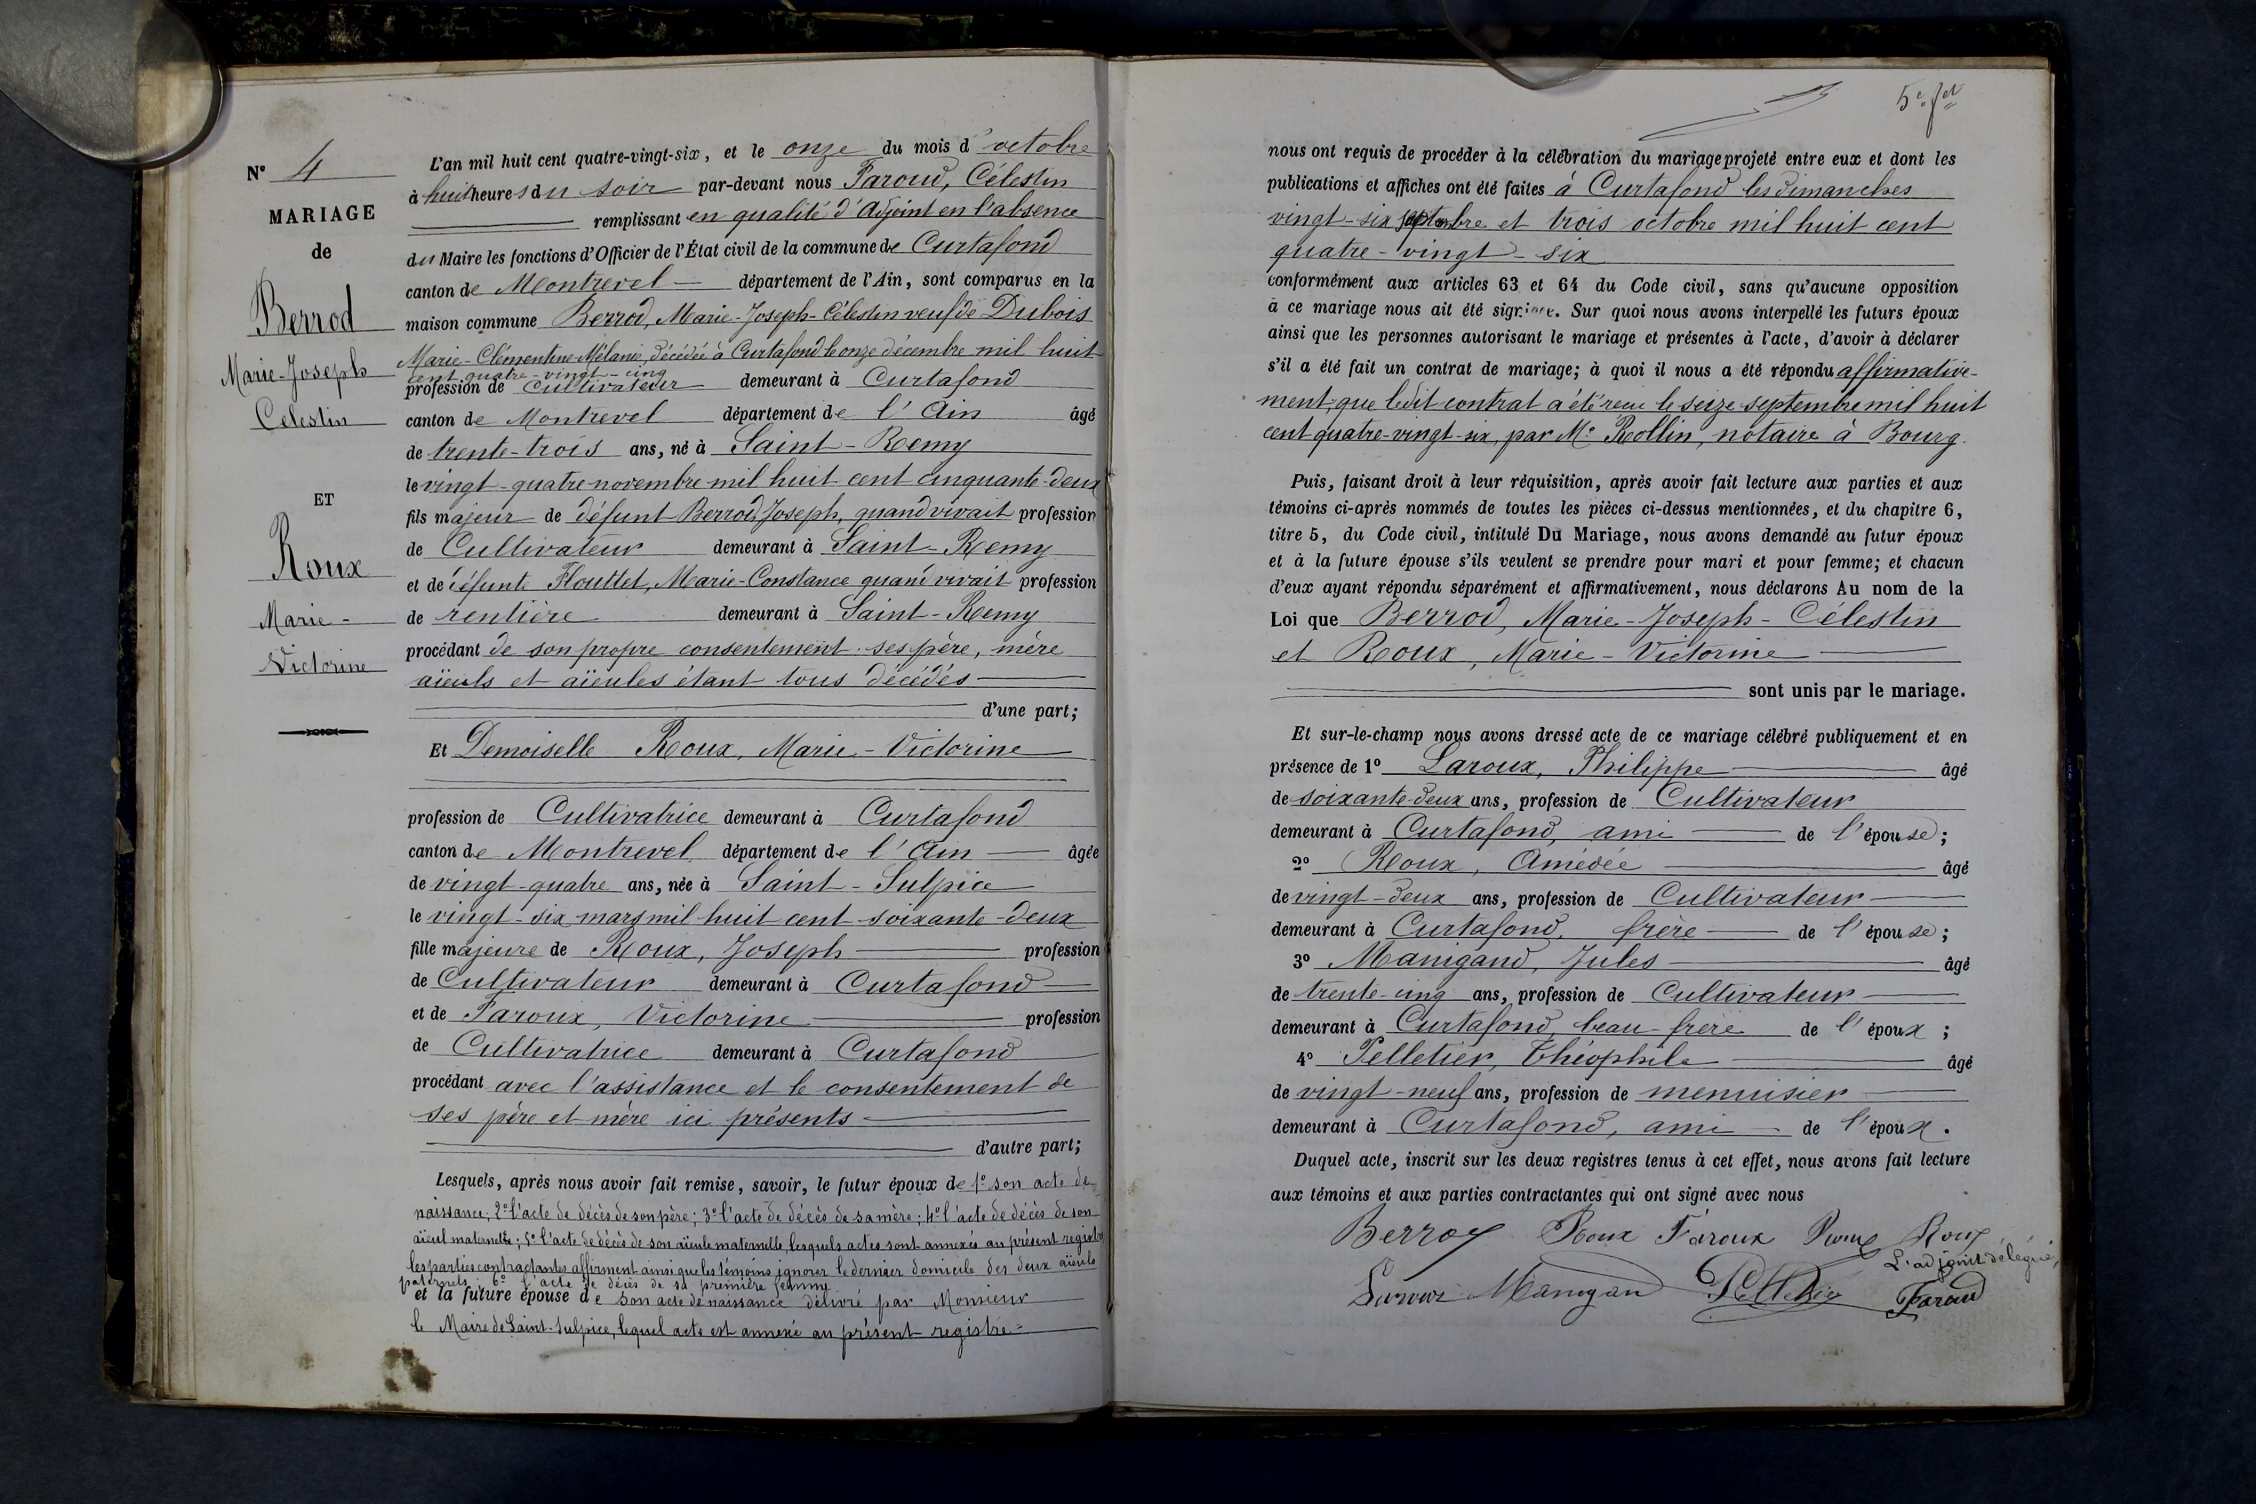 N° 4
MARIAGE
de
Berrod
Marie-Joseph
Célestin
ET
Roux
Marie-
Victorine
L'an mil huit cent quatre-vingt-six, et le onze du mois d'octobre
à huit heures du soir par-devant nous Faroud, Célestin
remplissant en qualité d'adjoint en l'absence
du Maire les fonctions d'Officier de l'État civil de la commune de Curtafond
canton de Montrevel département de l'Ain, sont comparus en la
maison commune Berrod, Marie-Joseph-Célestin veuf de Dubois
Marie-Clémentine-Mélanie, décédée à Curtafond le onze décembre mil huit
cent quatre-vingt-cinq
profession de cultivateur demeurant à Curtafond
canton de Montrevel département de l'Ain âgé
de trente-trois ans, né à Saint-Remy
le vingt-quatre novembre mil huit cent cinquante-deux
fils majeur de défunt Berrod, Joseph, quand vivait profession
de Cultivateur demeurant à Saint-Remy
et de défunte Flouttet, Marie-Constance quand vivait profession
de rentière demeurant à Saint-Remy
procédant de son propre consentement: ses père, mère
aïeuls et aïeules étant tous décédés
d'une part;
Et Demoiselle Roux, Marie-Victorine
profession de Cultivatrice demeurant à Curtafond
canton de Montrevel département de l'Ain âgée
de vingt-quatre ans, née à Saint-Sulpice
le vingt-six mars mil huit cent soixante-deux
fille majeure de Roux, Joseph profession
de Cultivateur demeurant à Curtafond
et de Faroux, Victorine profession
de Cultivatrice demeurant à Curtafond
procédant avec l'assistance et le consentement de
ses père et mère ici présents
d'autre part;
Lesquels, après nous avoir fait remise, savoir, le futur époux de 1° son acte de
naissance; 2° l'acte de décès de son père; 3° l'acte de décès de sa mère; 4° l'acte de décès de son
aïeul maternelle; 5° l'acte de décès de son aïeule maternelle, lesquels actes sont annexés au présent registre
les parties contractantes affirment ainsi que les témoins ignorer le dernier domicile des deux aïeuls
paternels; 6° l'acte de décès de sa première femme
et la future épouse de son acte de naissance délivré par Monsieur
le Maire de Saint-Sulpice, lequel acte est annexé au présent registre
5e fet
nous ont requis de procéder à la célébration du mariage projeté entre eux et dont les
publications et affiches ont été faites à Curtafond les dimanches
vingt-six septembre et trois octobre mil huit cent
quatre-vingt-six
conformément aux articles 63 et 64 du Code civil, sans qu'aucune opposition
à ce mariage nous ait été signifiée. Sur quoi nous avons interpellé les futurs époux
ainsi que les personnes autorisant le mariage et présentes à l'acte, d'avoir à déclarer
s'il a été fait un contrat de mariage; à quoi il nous a été répondu affirmative-
ment, que ledit contrat a été reçu le seize septembre mil huit
cent quatre-vingt-six, par Me Rollin, notaire à Bourg.
Puis, faisant droit à leur réquisition, après avoir fait lecture aux parties et aux
témoins ci-après nommés de toutes les pièces ci-dessus mentionnées, et du chapitre 6,
titre 5, du Code civil, intitulé Du Mariage, nous avons demandé au futur époux
et à la future épouse s'ils veulent se prendre pour mari et pour femme; et chacun
d'eux ayant répondu séparément et affirmativement, nous déclarons Au nom de la
Loi que Berrod, Marie-Joseph-Célestin
et Roux, Marie-Victorine
sont unis par le mariage.
Et sur-le-champ nous avons dressé acte de ce mariage célébré publiquement et en
présence de 1° Laroux, Philippe âgé
de soixante-deux ans, profession de Cultivateur
demeurant à Curtafond, ami de l'épouse;
2° Roux, Amédée âgé
de vingt-deux ans, profession de Cultivateur
demeurant à Curtafond, frère de l'épouse;
3° Manigand, Jules âgé
de trente-cinq ans, profession de Cultivateur
demeurant à Curtafond, beau-frère de l'époux;
4° Pelletier, Théophile âgé
de vingt-neuf ans, profession de menuisier
demeurant à Curtafond, ami de l'époux.
Duquel acte, inscrit sur les deux registres tenus à cet effet, nous avons fait lecture
aux témoins et aux parties contractantes qui ont signé avec nous
Berrod Roux Faroux Roux Roux
L'adjoint délégué,
Laroux Manigan Pelletier Faroud